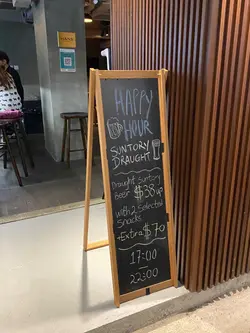 HAPPY
HOUR
SUNTORY
DRAUGHT
Draught Suntory
Beer $38 up
with 2 Selected
Snacks
+Extra $70
17:00
-
22:00